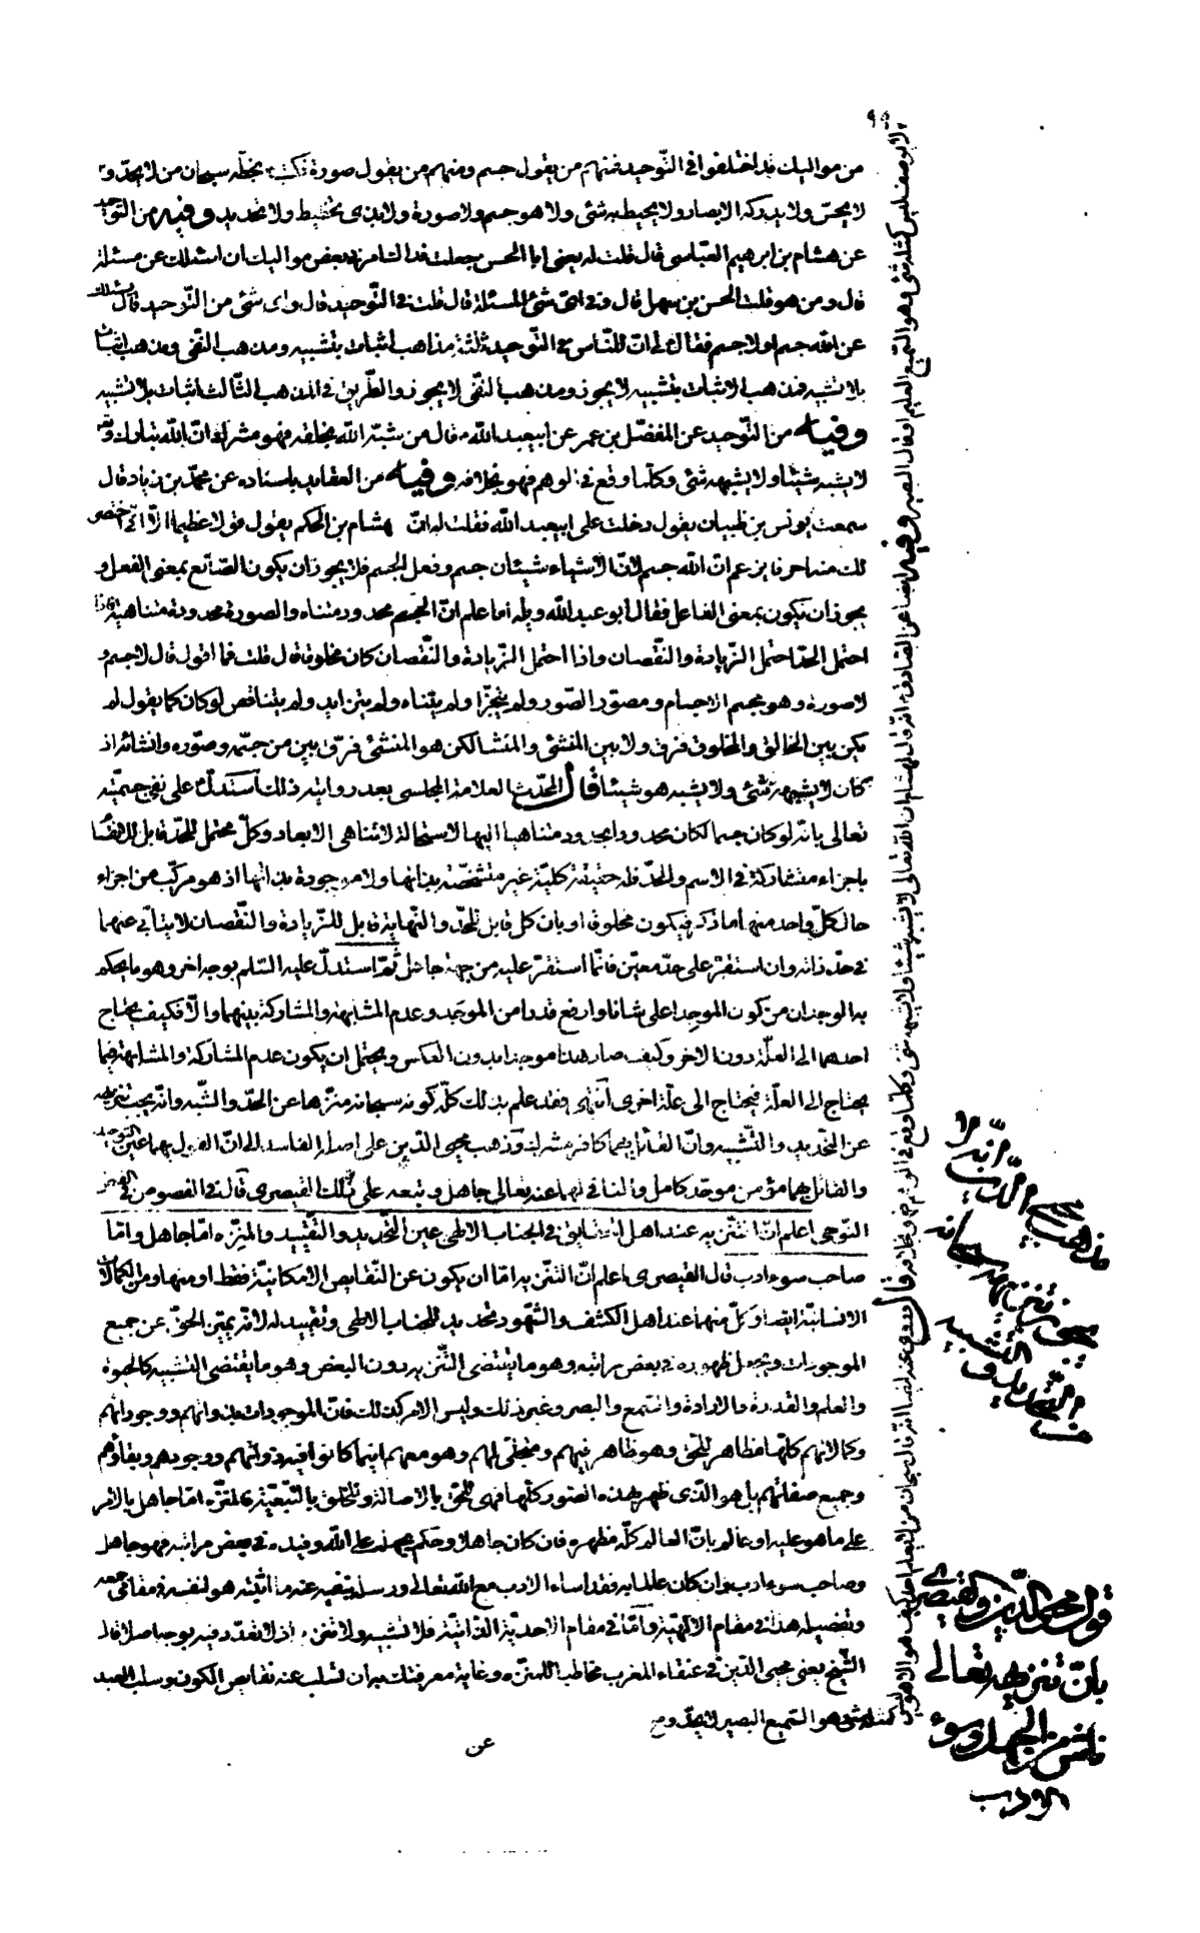 من مواليك قد اختلفوا في التّوحيد فمنهم من يقول جسم ومنهم من يقول صورة فكتب بخطّه سبحان من لا يحدّ و
لا يحسّ ولا يدركه الابصار ولا يحيط به شئ ولا هو جسم ولا صورة ولا بذي تخطيط ولا تحديد وفيه من التوحيد
عن هشام بن ابرهيم العبّاسى قال قلت له يعنى ابا الحسن جعلت فداك امرنى بعض مواليك ان اسئلك عن مسئلة
قال ومن هو قلت الحسن بن سهل قال و فى اىّ شئ المسئلة قال قلت فى التّوحيد قال واى شئ من التّوحيد قال يسئلك
عن الله جسم او لا جسم فقال لى انّ للنّاس فى التّوحيد ثلثة مذاهب اثبات بتشبيه ومذهب النّفى ومذهب اثبات
بلا تشبيه فمذهب الاثبات بتشبيه لا يجوز ومذهب النّفى لا يجوز والطّريق فى المذهب الثّالث اثبات بلا تشبيه
وفيه من التّوحيد عن المفضّل بن عمر عن ابيعبد الله قال من شبّه الله بخلقه فهو مشرك انّ الله تبارك وتعه
لا يشبه شيئا ولا يشبهه شئ وكلّما وقع فى الوهم فهو بخلافه وفيه من العقايد باسناده عن محمّد بن زياد قال
سمعت يونس بن ظبيان يقول دخلت على ابيعبد الله فقلت له انّ هشام بن الحكم يقول قولا عظيما الّا انّى اختصر
لك منه احرفا يزعم انّ الله جسم لانّ الاشياء شيئان جسم وفعل الجسم فلا يجوز ان يكون الصّانع بمعنى الفعل و
يجوز ان يكون بمعنى الفاعل فقال ابو عبد الله ويله اما علم انّ الجسم محدود متناه والصورة محدودة متناهية فاذا
احتمل الحدّ احتمل الزّيادة والنّقصان واذا احتمل الزّيادة والنّقصان كان مخلوقا قال قلت فما اقول قال لا جسم و
لا صورة وهو مجسم الاجسام ومصوّر الصّور ولم يتجزّا ولم يتناه ولم يتزايد ولم يتناقص لو كان كما يقول لم
يكن بين الخالق والمخلوق فرق ولا بين المنشئ والمنشا لكن هو المنشئ فرّق بين من جسّمه وصوّره وانشائه اذ
كان لا يشبهه شئ ولا يشبه هو شيئا قال المحدّث العلامة المجلسى بعد روايته ذلك استدلّ على نفى جسميّته
تعالى بانّه لو كان جسما لكان محدودا بحدود متناهيا اليها لاستحالة لا تناهى الابعاد وكلّ محتمل للحدّ قابل للانقسام
باجزاء متشاركة فى الاسم والحدّ فله حقيقة كليّة غير متشخّصة بذاتها ولا موجودة بذاتها اذ هو مركّب من اجزاء
حال كلّ واحد منها ما ذكر فيكون مخلوقا او بان كل قابل للحدّ والنّهاية قابل للزّيادة والنّقصان لا يتابّى عنهما
فى حدّ ذاته وان استقرّ على حدّ معيّن فانّما استقرّ عليه من جهة جاعل ثمّ استدلّ عليه السّلم بوجه اخر وهو ما يحكم
به الوجدان من كون الموجد اعلى شانا وارفع قدرا من الموجد وعدم المشابهة والمشاركة بينهما والّا فكيف يحتاج
احدهما الى العلّة دون الاخر وكيف صار هذا موجدا بدون العكس ويحتمل ان يكون عدم المشاركة والمشابهة فيما
يحتاج الى العلّة فيحتاج الى علّة اخرى انتهى فقد علم بذلك كلّه كونه سبحانه منزّها عن الحدّ والشّبه وانّه يجب تنزيهه
عن التّحديد والتّشبيه وانّ القائل بهما كافر مشرك وذهب محيى الدّين على اصله الفاسد الى انّ القول بهما عين التّوحيد
والقائل بهما مؤمن موحّد كامل والنافى لهما عنه تعالى جاهل وتبعه على ذلك القيصرى قال فى الفصوص فى الفصّ
النّوحى اعلم انّ التّنزيه عند اهل الحقايق فى الجناب الالهى عين التّحديد والتّقييد والمنزّه امّا جاهل وامّا
صاحب سوء ادب قال القيصرى اعلم انّ التّنزيه امّا ان يكون عن النّقايص الامكانيّة فقط او منها ومن الكمالات
الانسانيّة ايضا وكلّ منهما عند اهل الكشف والشّهود تحديد للجناب الالهى وتقييد له لانّه يميّز الحقّ عن جميع
الموجودات ويجعل ظهوره فى بعض مراتبه وهو ما يقتضى التّنزيه دون البعض وهو ما يقتضى التشبيه كالحيوة
والعلم والقدرة والارادة والسّمع والبصر وغير ذلك وليس الامر كذلك فانّ الموجودات بذواتهم ووجوداتهم
وكمالاتهم كلّها مظاهر للحقّ وهو ظاهر فيهم ومتجلّى لهم وهو معهم اينما كانوا فهى ذواتهم ووجودهم وبقاؤهم
وجميع صفاتهم بل هو الّذى ظهر بهذه الصّور كلّها فهى للحقّ بالاصالة وللخلق بالتّبعيّة فالمنزّه امّا جاهل بالامر
على ما هو عليه او عالم بانّ العالم كلّه مظهره فان كان جاهلا وحكم بجهله على الله وقيده فى بعض مراتبه فهو جاهل
وصاحب سوء ادب وان كان عالما به فقد اساء الادب مع الله تعالى ورسله بنفيه عنه ما اثبته هو لنفسه فى مقامى جمعه
وتفصيله هذا فى مقام الالهيّة وامّا فى مقام الاحديّة الذّاتيّة فلا تشبيه ولا تنزيه اذ لا تعدّد فيه بوجه اصلا قال
الشّيخ يعنى محيى الدّين فى عنقاء المغرب مخاطبا للمنزّه وغاية معرفتك به ان تسلب عنه نقايص الكون وسلب العبد
عن
كمثله شئ وهو السّميع البصير لا يحدّ و
لا يوصف ليس كمثله شئ وهو السّميع العليم او قال البصير وفيه ايضا عن الصّادق انّه قال لهشام ان الله تعالى لا يشبه شيئا ولا يشبهه شئ وكلّما وقع فى الوهم فهو بخلافه قال وروى عنه ايضا انّه قال سبحان من لا يعلم احد كيف هو الا هو ليس
مذهب محيى الدّين انّه لا
يجوز تنزيهه سبحانه
من التّحديد والتّشبيه
قول محيى الدّين والقيصرى
بانّ تنزيهه تعالى
ناش من الجهل وسوء
الادب